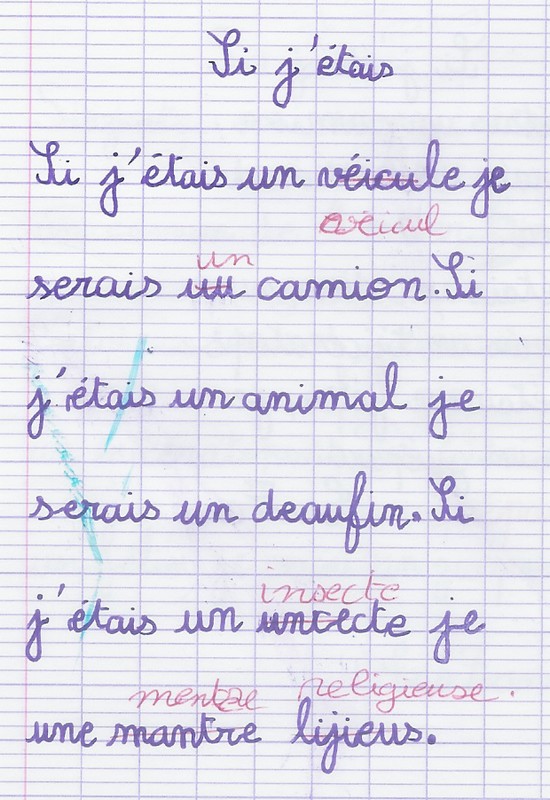 Si j'étais
Si j'étais un véicule je
véicul
un
serais un camion. Si
j'étais un animal je
serais un deaufin. Si
insecte
j'étais un untecte je
mentre religieuse.
une mantre lijieus.